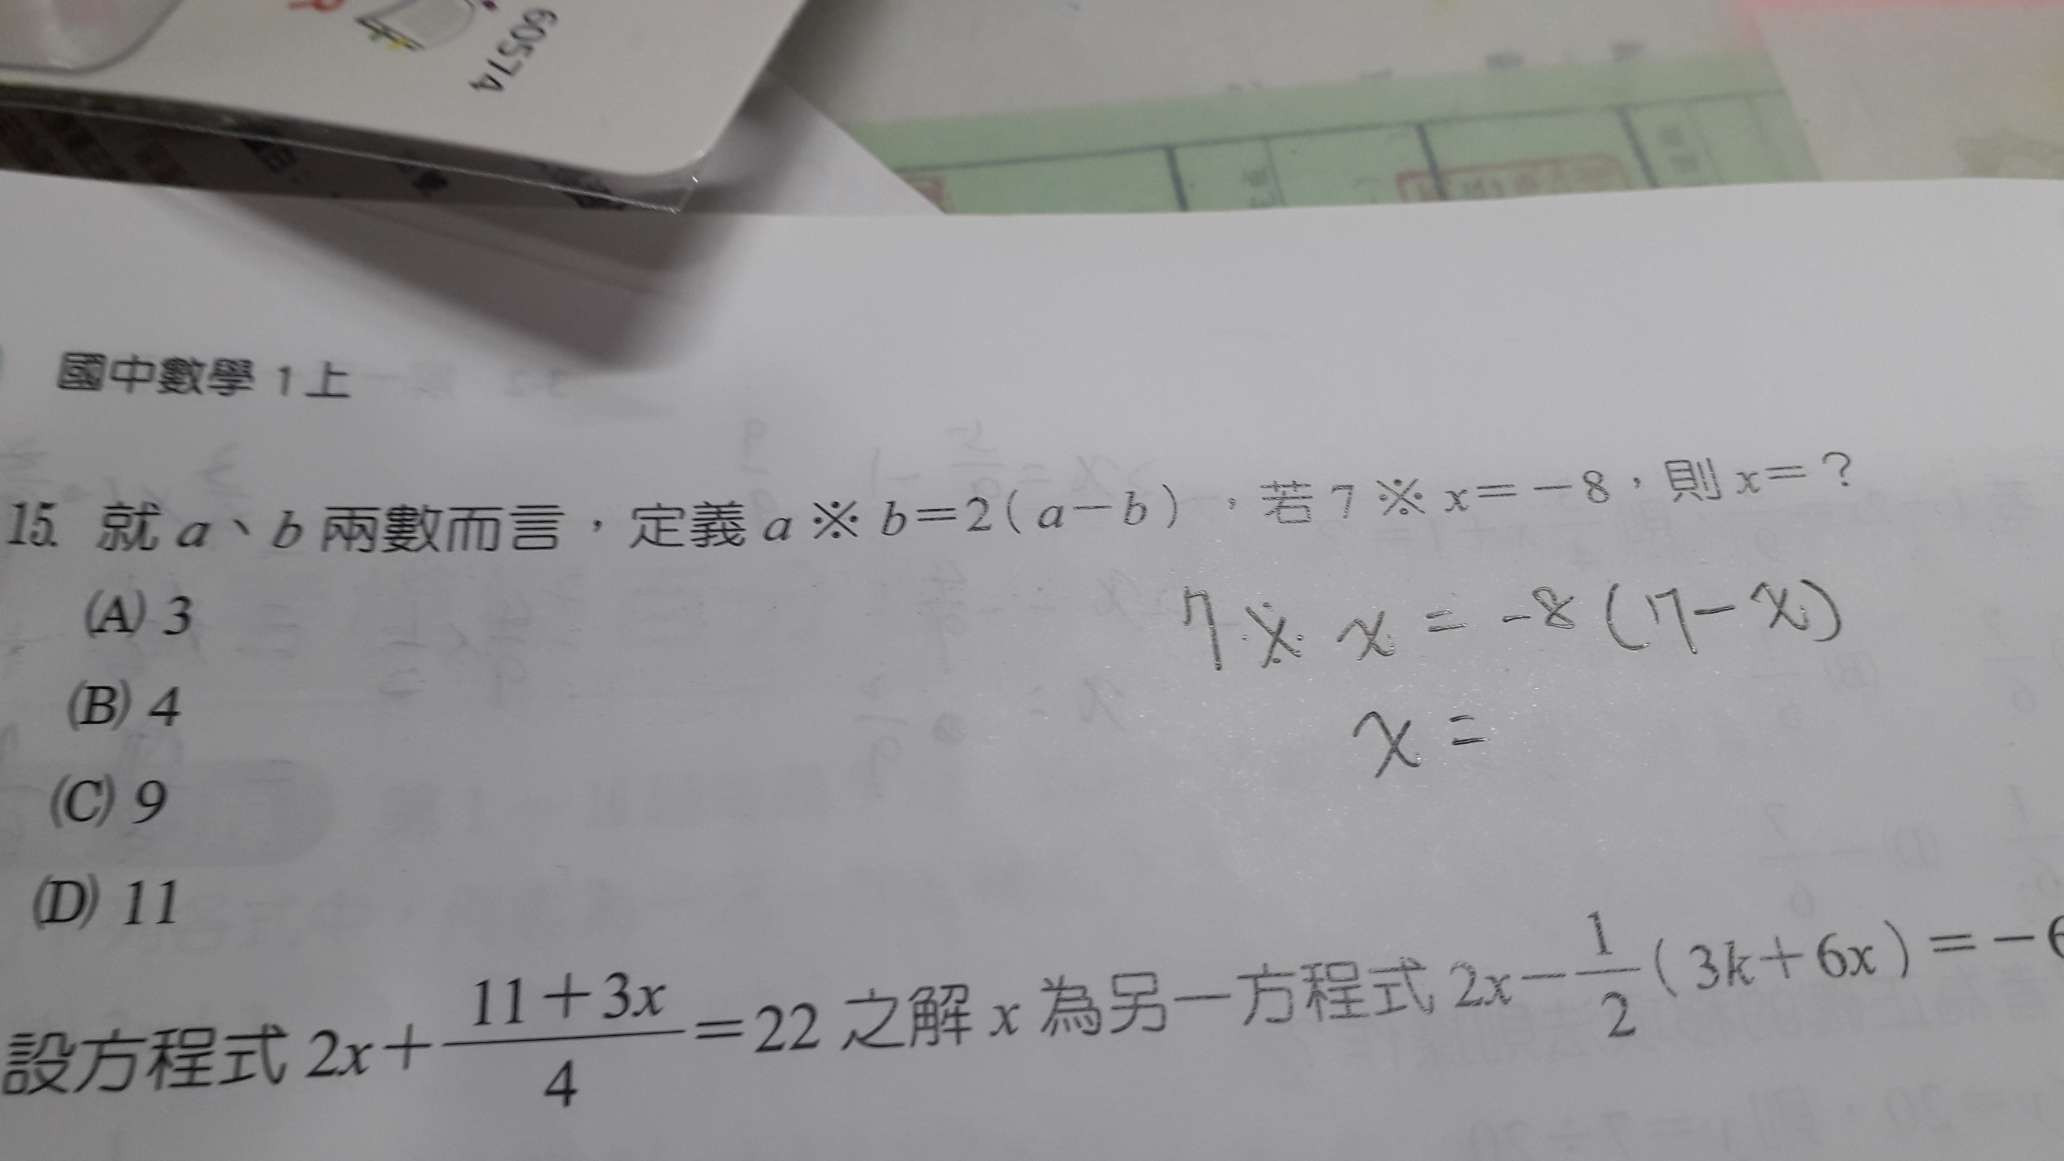 60574
國中數學 1上
15. 就 a、b 兩數而言，定義 a ※ b=2(a-b)，若 7 ※ x=-8，則 x=？
7 ※ x = -8 (17-x)
(A) 3
x =
(B) 4
(C) 9
(D) 11
設方程式 2x+\frac{11+3x}{4}=22 之解 x 為另一方程式 2x-\frac{1}{2}(3k+6x)=-6